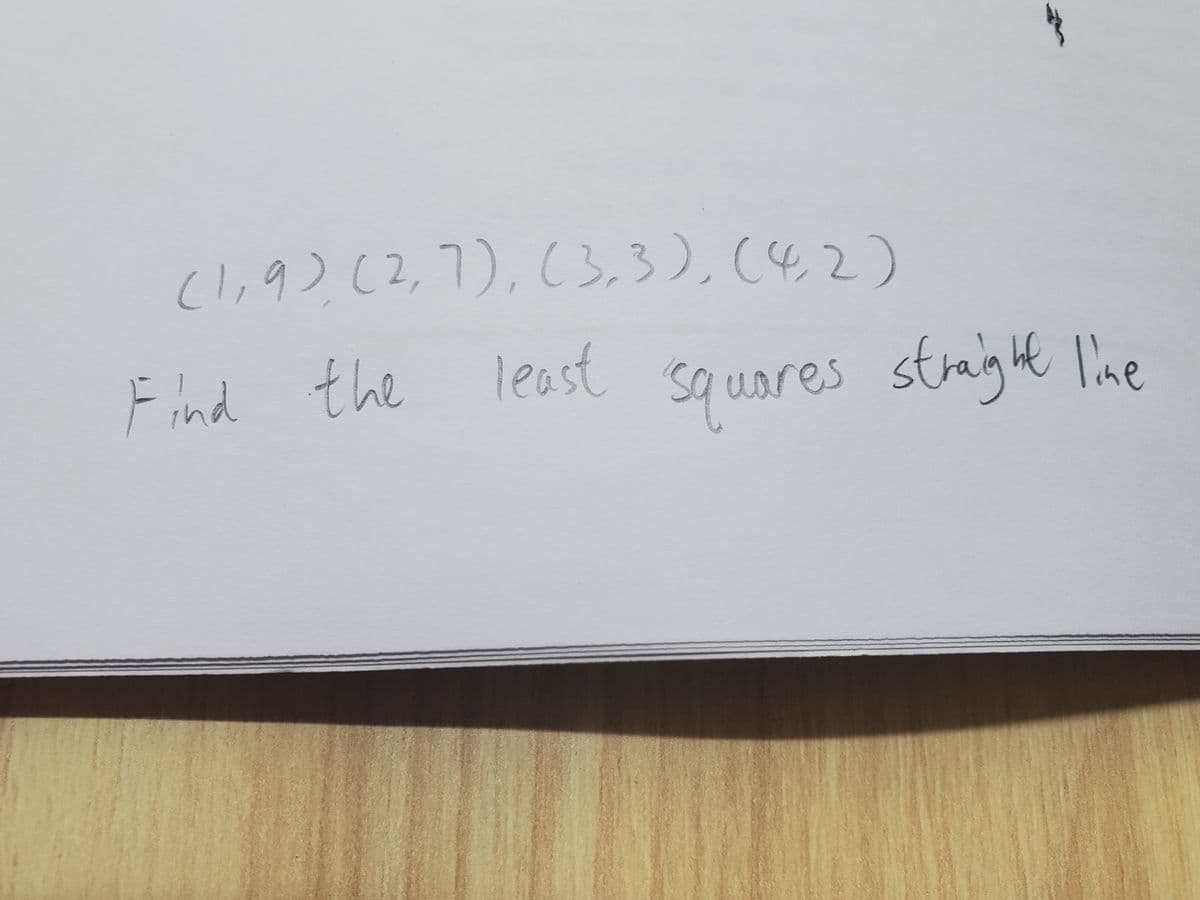 (1,9), (2,7), (3,3), (4,2)
Find the least squares straight line